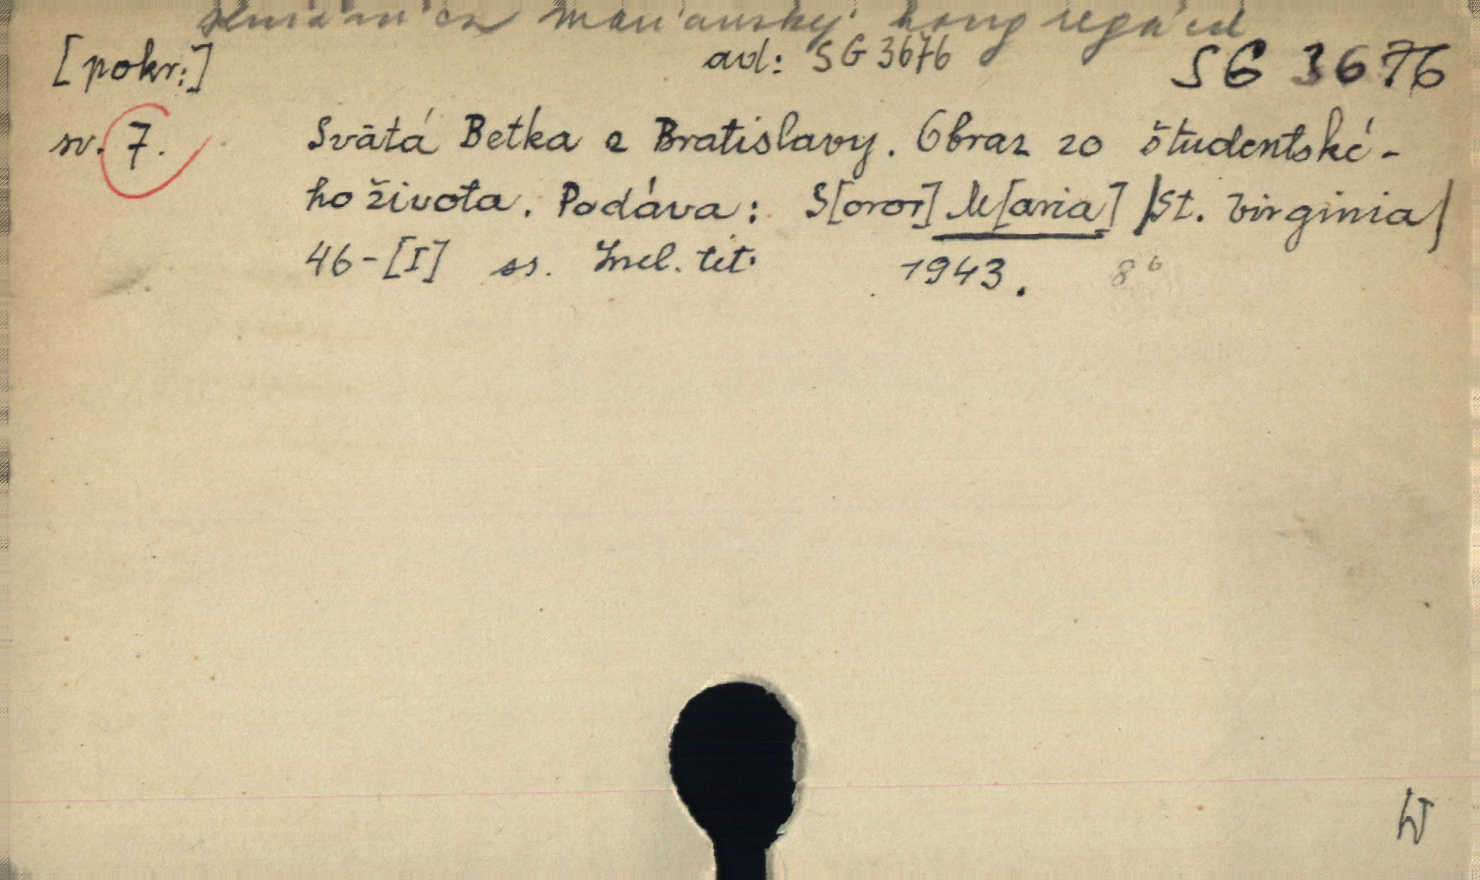 mariánskych kongregácií
[pokr:] ad: SG 3676 SG 3676
sv. 7. Svätá Betka z Bratislavy. Obraz zo študentské-
ho života. Podáva: S[oror] M[aria] /St. Virginia/
46-[I] ss. Incl. tit. 1943. 8°